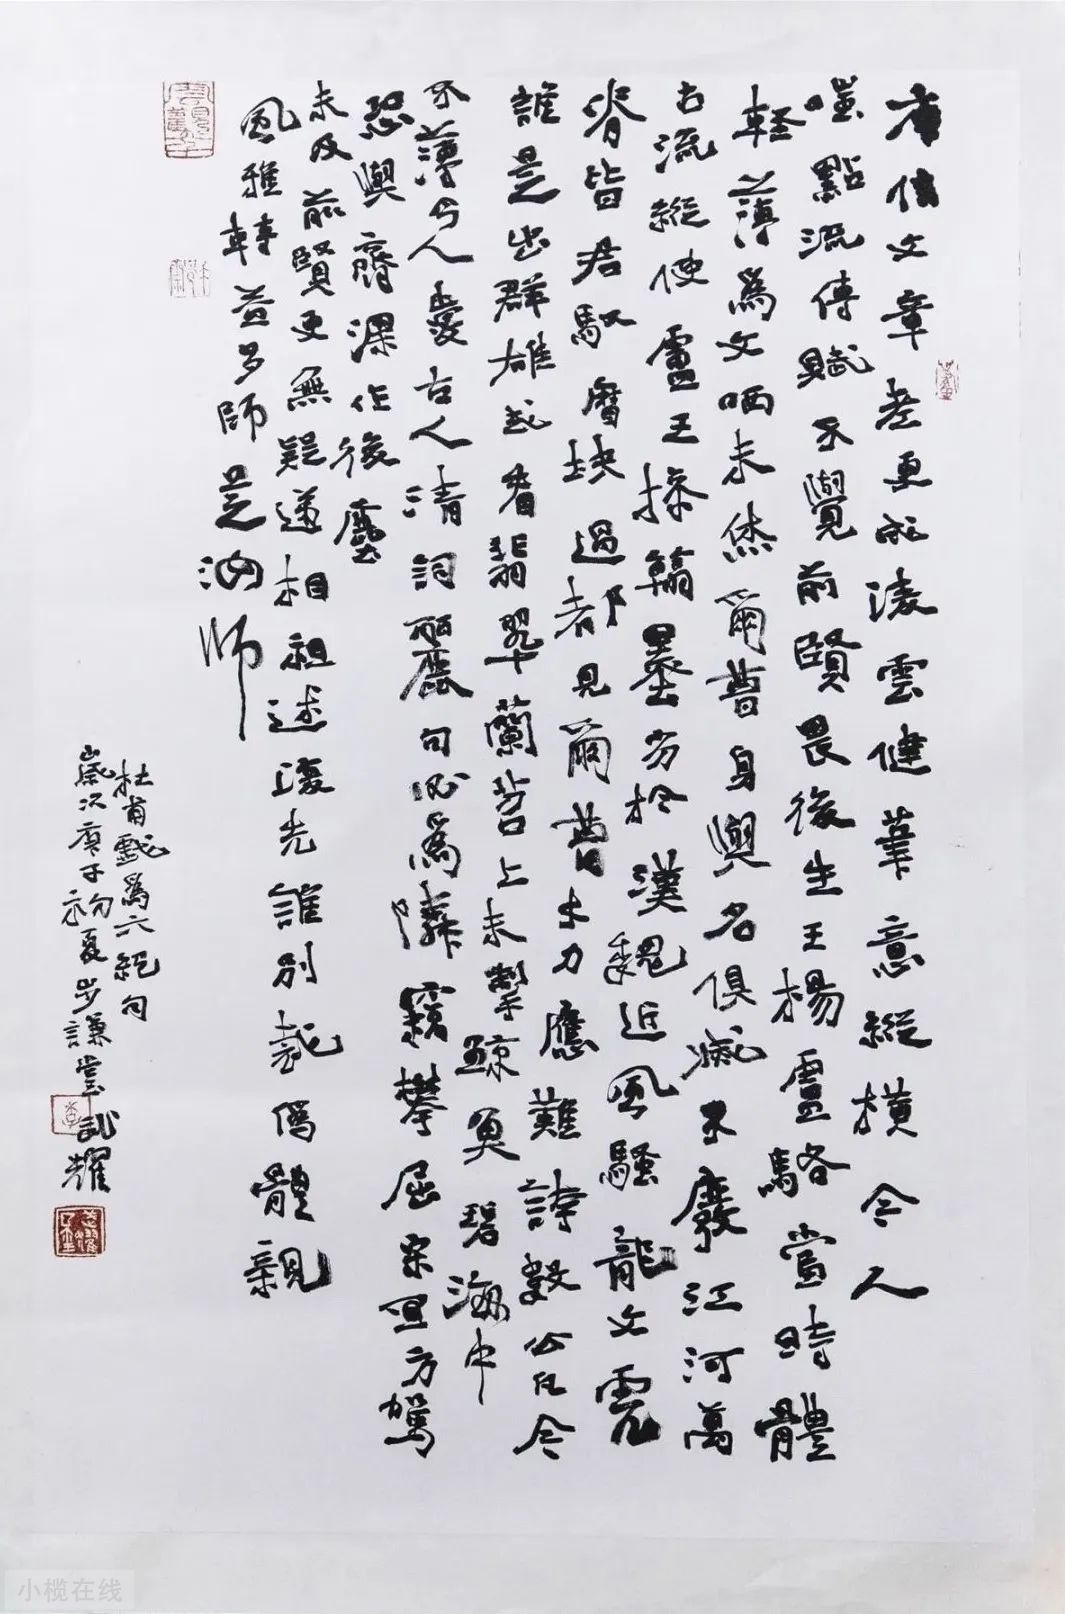 庾信文章老更成凌雲健筆意縱橫今人
嗤點流傳賦不覺前賢畏後生王楊盧駱當時體
輕薄爲文哂未休爾曹身與名俱滅不廢江河萬
古流縱使盧王操翰墨劣於漢魏近風騷龍文虎
脊皆君馭曆塊過都見爾曹才力應難誇數公凡今
誰是出群雄或看翡翠蘭苕上未掣鯨魚碧海中
不薄今人愛古人清詞麗句必爲隣竊攀屈宋宜方駕
恐與齊梁作後塵
未及前賢更無疑遞相祖述復先誰別裁僞體親
風雅轉益多師是汝師
杜甫戲爲六絕句
歲次庚子初夏步謙堂耀
小榄在线